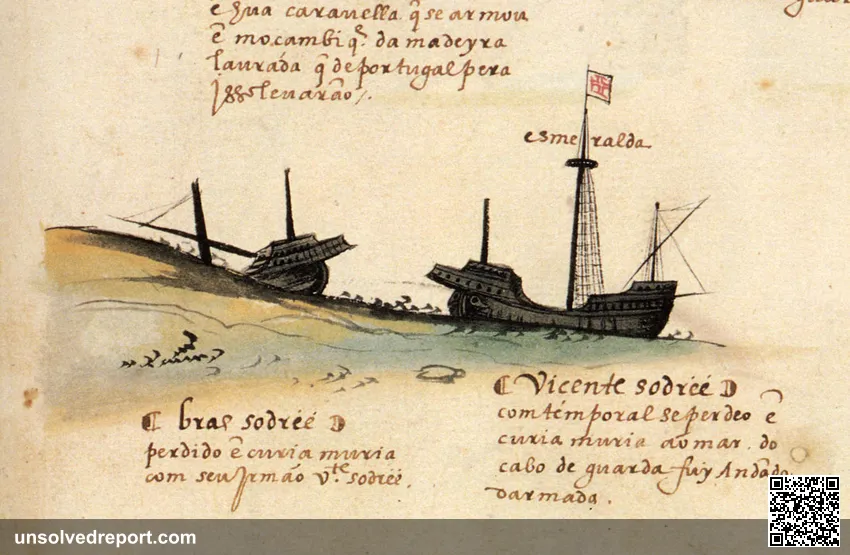 e sua caravella q̃ se armou
ẽ moçambiq̃. da madeyra
laurada q̃ de portugal pera
jsso levarão /.
esmeralda
bras sodrẽe
perdido ẽ curia muria
com seu Jrmão v.te sodrẽe.
Vicente sodrẽe
com témporal se perdeo ẽ
curia muria ao mar. do
cabo de guarda fuy Andãdo
darmada.
unsolvedreport.com